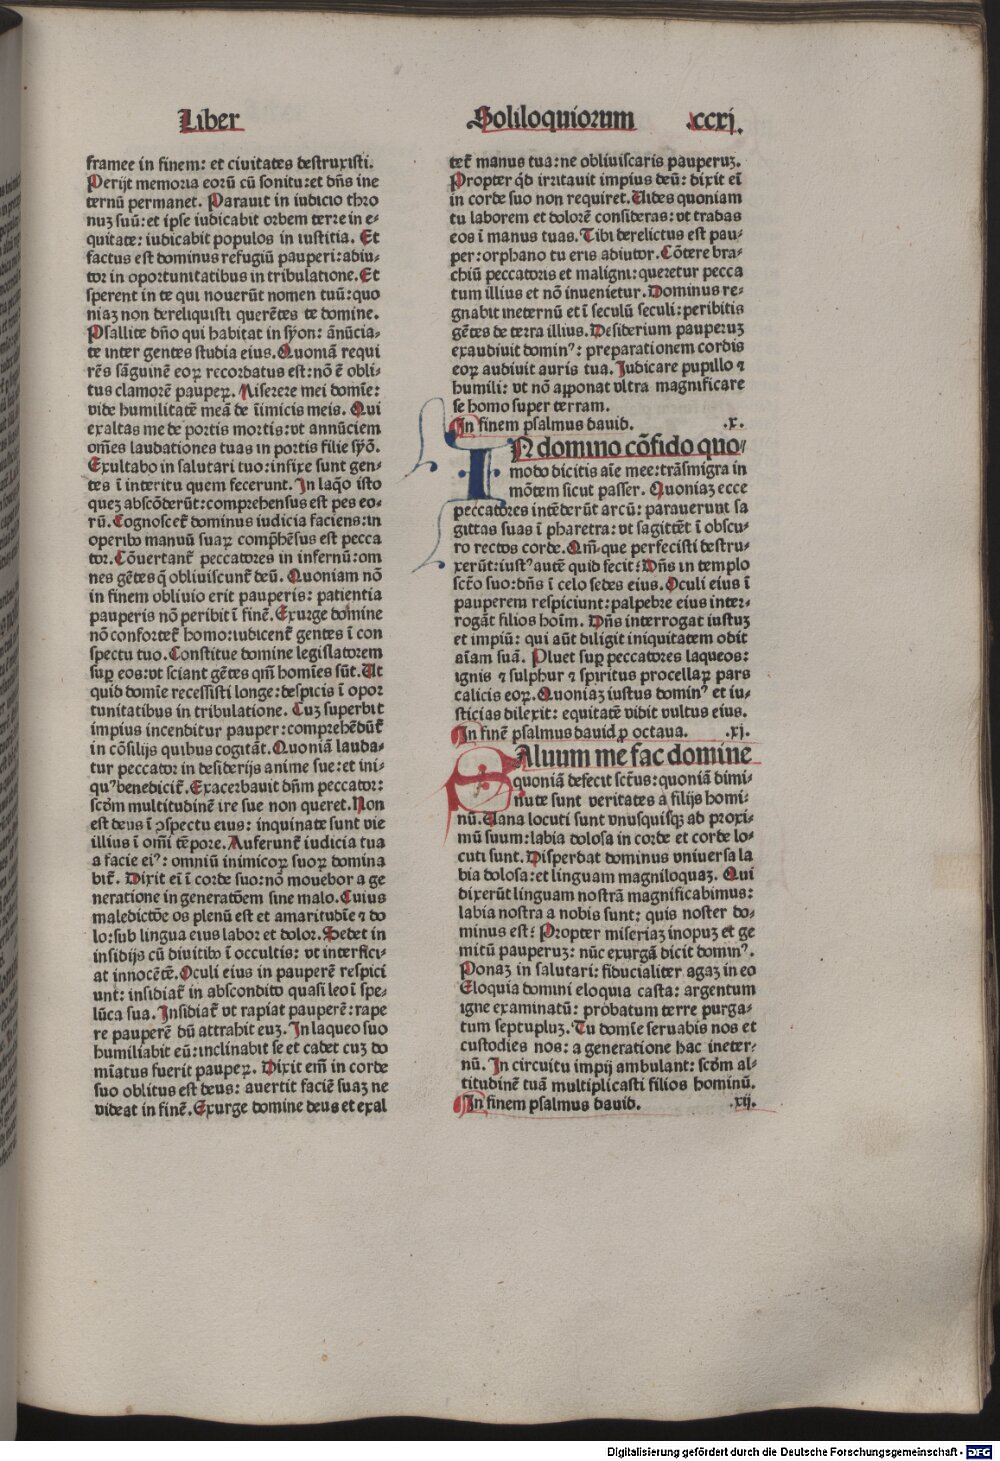 Liber
Soliloquiorum .ccxj.
framee in finem: et ciuitates destruxisti.
Perijt memoria eorū cū sonitu: et dn̄s ine
ternū permanet. Parauit in iudicio thro
nuȝ suū: et ipse iudicabit orbem terre in e-
quitate: iudicabit populos in iustitia. Et
factus est dominus refugiū pauperi: adiu-
tor in oportunitatibus in tribulatione. Et
sperent in te qui nouerūt nomen tuū: quo
niaȝ non dereliquisti querētes te domine.
Psallite dn̄o qui habitat in syon: ānūcia-
te inter gentes studia eius. Quoniā requi
rēs sāguinē eoꝝ recordatus est: nō ē obli-
tus clamorē paupeꝝ. Miserere mei domīe:
vide humilitatē meā de īimicis meis. Qui
exaltas me de portis mortis: vt annūciem
om̄es laudationes tuas in portis filie syō.
Exultabo in salutari tuo: infixe sunt gen-
tes ī interitu quem fecerunt. In laq̄o isto
queȝ abscōderūt: comprehensus est pes eo-
rū. Cognoscet᷑ dominus iudicia faciens: in
operibꝰ manuū suaꝝ comp̄hēsus est pecca
tor. Cōuertant᷑ peccatores in infernū: om
nes gētes q̄ obliuiscunt᷑ deū. Quoniam nō
in finem obliuio erit pauperis: patientia
pauperis nō peribit ī finē. Exurge domine
nō confortet᷑ homo: iudicent᷑ gentes ī con
spectu tuo. Constitue domine legislatorem
suꝑ eos: vt sciant gētes qm̄ homīes sūt. Ut
quid domīe recessisti longe: despicis ī opor
tunitatibus in tribulatione. Cuȝ superbit
impius incenditur pauper: comprehēdūt᷑
in cōsilijs quibus cogitāt. Quoniā lauda-
tur peccator in desiderijs anime sue: et ini-
quꝰ benedicit᷑. Exacerbauit dn̄m peccator:
scd̄m multitudinē ire sue non queret. Non
est deus ī ꝯspectu eius: inquinate sunt vie
illius ī om̄i tēpore. Auferunt᷑ iudicia tua
a facie eiꝰ: omniū inimicoꝝ suoꝝ domina
bit᷑. Dixit eī ī corde suo: nō mouebor a ge
neratione in generatōem sine malo. Cuius
maledictōe os plenū est et amaritudīe ⁊ do
lo: sub lingua eius labor et dolor. Sedet in
insidijs cū diuitibꝰ ī occultis: vt interfici-
at innocētē. Oculi eius in pauperē respici
unt: insidiat᷑ in abscondito quasi leo ī spe-
lūca sua. Insidiat᷑ vt rapiat pauperē: rape
re pauperē dū attrahit euȝ. In laqueo suo
humiliabit eū: inclinabit se et cadet cuȝ do
mīatus fuerit paupeꝝ. Dixit em̄ in corde
suo oblitus est deus: auertit faciē suaȝ ne
videat in finē. Exurge domine deus et exal
tet᷑ manus tua: ne obliuiscaris pauperuȝ.
Propter qd̄ irritauit impius deū: dixit eī
in corde suo non requiret. Uides quoniam
tu laborem et dolorē consideras: vt tradas
eos ī manus tuas. Tibi derelictus est pau-
per: orphano tu eris adiutor. Cōtere bra-
chiū peccatoris et maligni: queretur pecca
tum illius et nō inuenietur. Dominus re-
gnabit ineternū et ī seculū seculi: peribitis
gētes de terra illius. Desiderium pauperuȝ
exaudiuit dominꝰ: preparationem cordis
eoꝝ audiuit auris tua. Judicare pupillo ⁊
humili: vt nō apponat vltra magnificare
se homo super terram.
In finem psalmus dauid. .x.
IN domino cōfido quo
modo dicitis aīe mee: trāsmigra in
mōtem sicut passer. Quoniaȝ ecce
peccatores intēderūt arcū: parauerunt sa
gittas suas ī pharetra: vt sagittēt ī obscu-
ro rectos corde. Qm̄ que perfecisti destru-
xerūt: iustꝰ autē quid fecit: Dn̄s in templo
sct̄o suo: dn̄s ī celo sedes eius. Oculi eius ī
pauperem respiciunt: palpebre eius inter-
rogāt filios hoīm. Dn̄s interrogat iustuȝ
et impiū: qui aūt diligit iniquitatem odit
aīam suā. Pluet suꝑ peccatores laqueos:
ignis ⁊ sulphur ⁊ spiritus procellaꝝ pars
calicis eoꝝ. Quoniaȝ iustus dominꝰ et iu-
sticias dilexit: equitatē vidit vultus eius.
In finē psalmus dauid ꝓ octaua. .xj.
SAluum me fac domine
quoniā defecit sct̄us: quoniā dimi-
nute sunt veritates a filijs homi-
nū. Uana locuti sunt vnusquisqꝫ ad proxi-
mū suum: labia dolosa in corde et corde lo-
cuti sunt. Disperdat dominus vniuersa la
bia dolosa: et linguam magniloquaȝ. Qui
dixerūt linguam nostrā magnificabimus:
labia nostra a nobis sunt: quis noster do-
minus est: Propter miseriaȝ inopuȝ et ge
mitū pauperuȝ: nūc exurgā dicit dominꝰ.
Ponaȝ in salutari: fiducialiter agaȝ in eo
Eloquia domini eloquia casta: argentum
igne examinatū: probatum terre purga-
tum septupluȝ. Tu domīe seruabis nos et
custodies nos: a generatione hac ineter-
nū. In circuitu impij ambulant: scd̄m al-
titudinē tuā multiplicasti filios hominū.
In finem psalmus dauid. .xij.
Digitalisierung gefördert durch die Deutsche Forschungsgemeinschaft - DFG